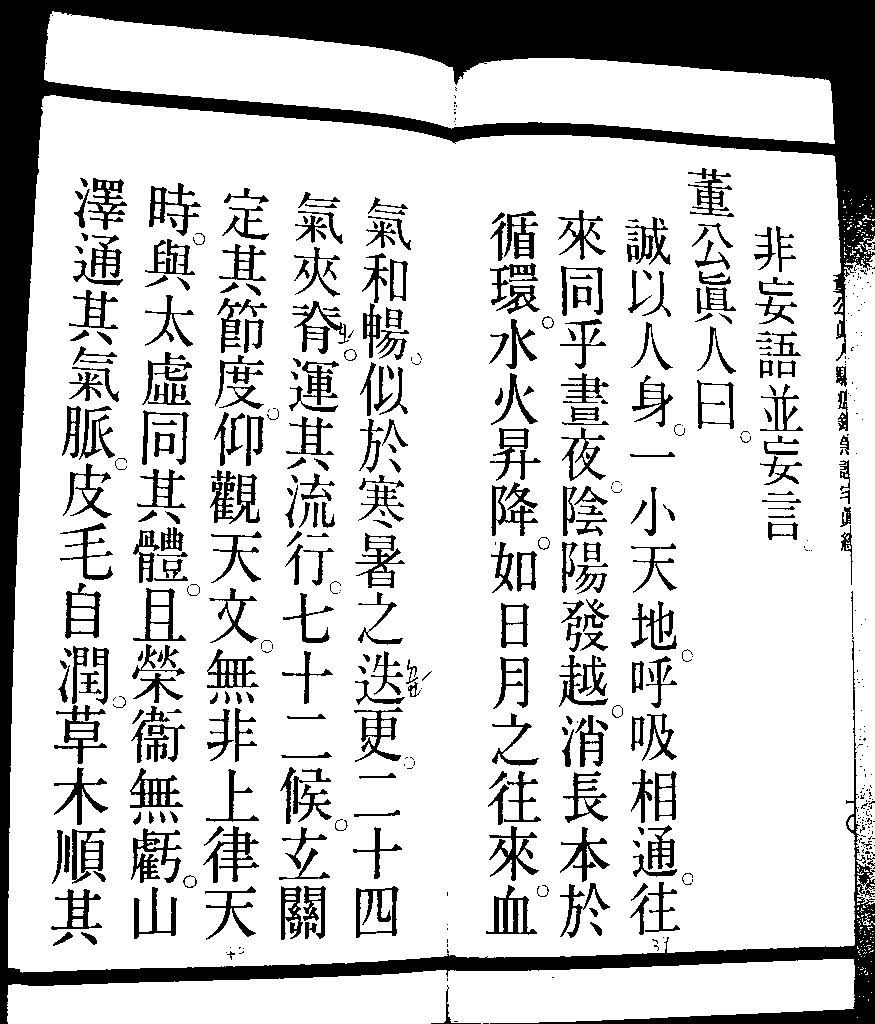 非妄語並妄言
董公眞人曰。
誠以人身。一小天地。呼吸相通。往
來同乎晝夜。陰陽發越。消長本於
循環。水火昇降。如日月之往來。血
氣和暢。似於寒暑之迭更。二十四
氣夾脊。運其流行。七十二候。玄關
定其節度。仰觀天文。無非上律天
時。與太虛同其體。且榮衞無虧。山
澤通其氣脈。皮毛自潤。草木順其
39
40